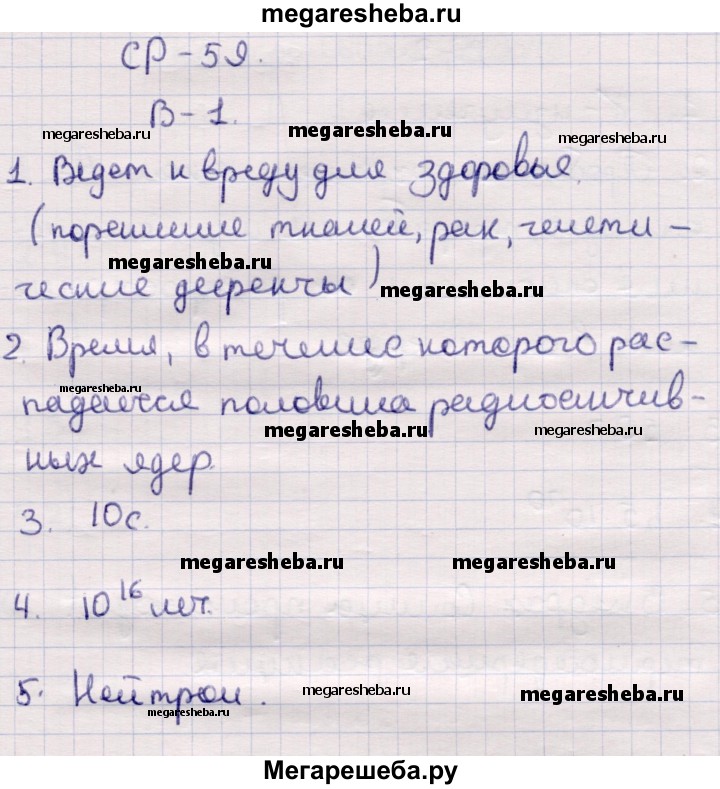 megaresheba.ru
СР-59.
В-1.
megaresheba.ru megaresheba.ru megaresheba.ru
1. Ведет к вреду для здоровья.
(порешение тканей, рак, генети-
megaresheba.ru
ческие дефекты) megaresheba.ru
2. Время, в течение которого рас-
megaresheba.ru
падается половина радиоактив-
megaresheba.ru megaresheba.ru
ных ядер.
3. 10с.
megaresheba.ru megaresheba.ru
4. 10¹⁶ лет.
5. Нейтрон. megaresheba.ru megaresheba.ru
megaresheba.ru
Мегарешеба.ру